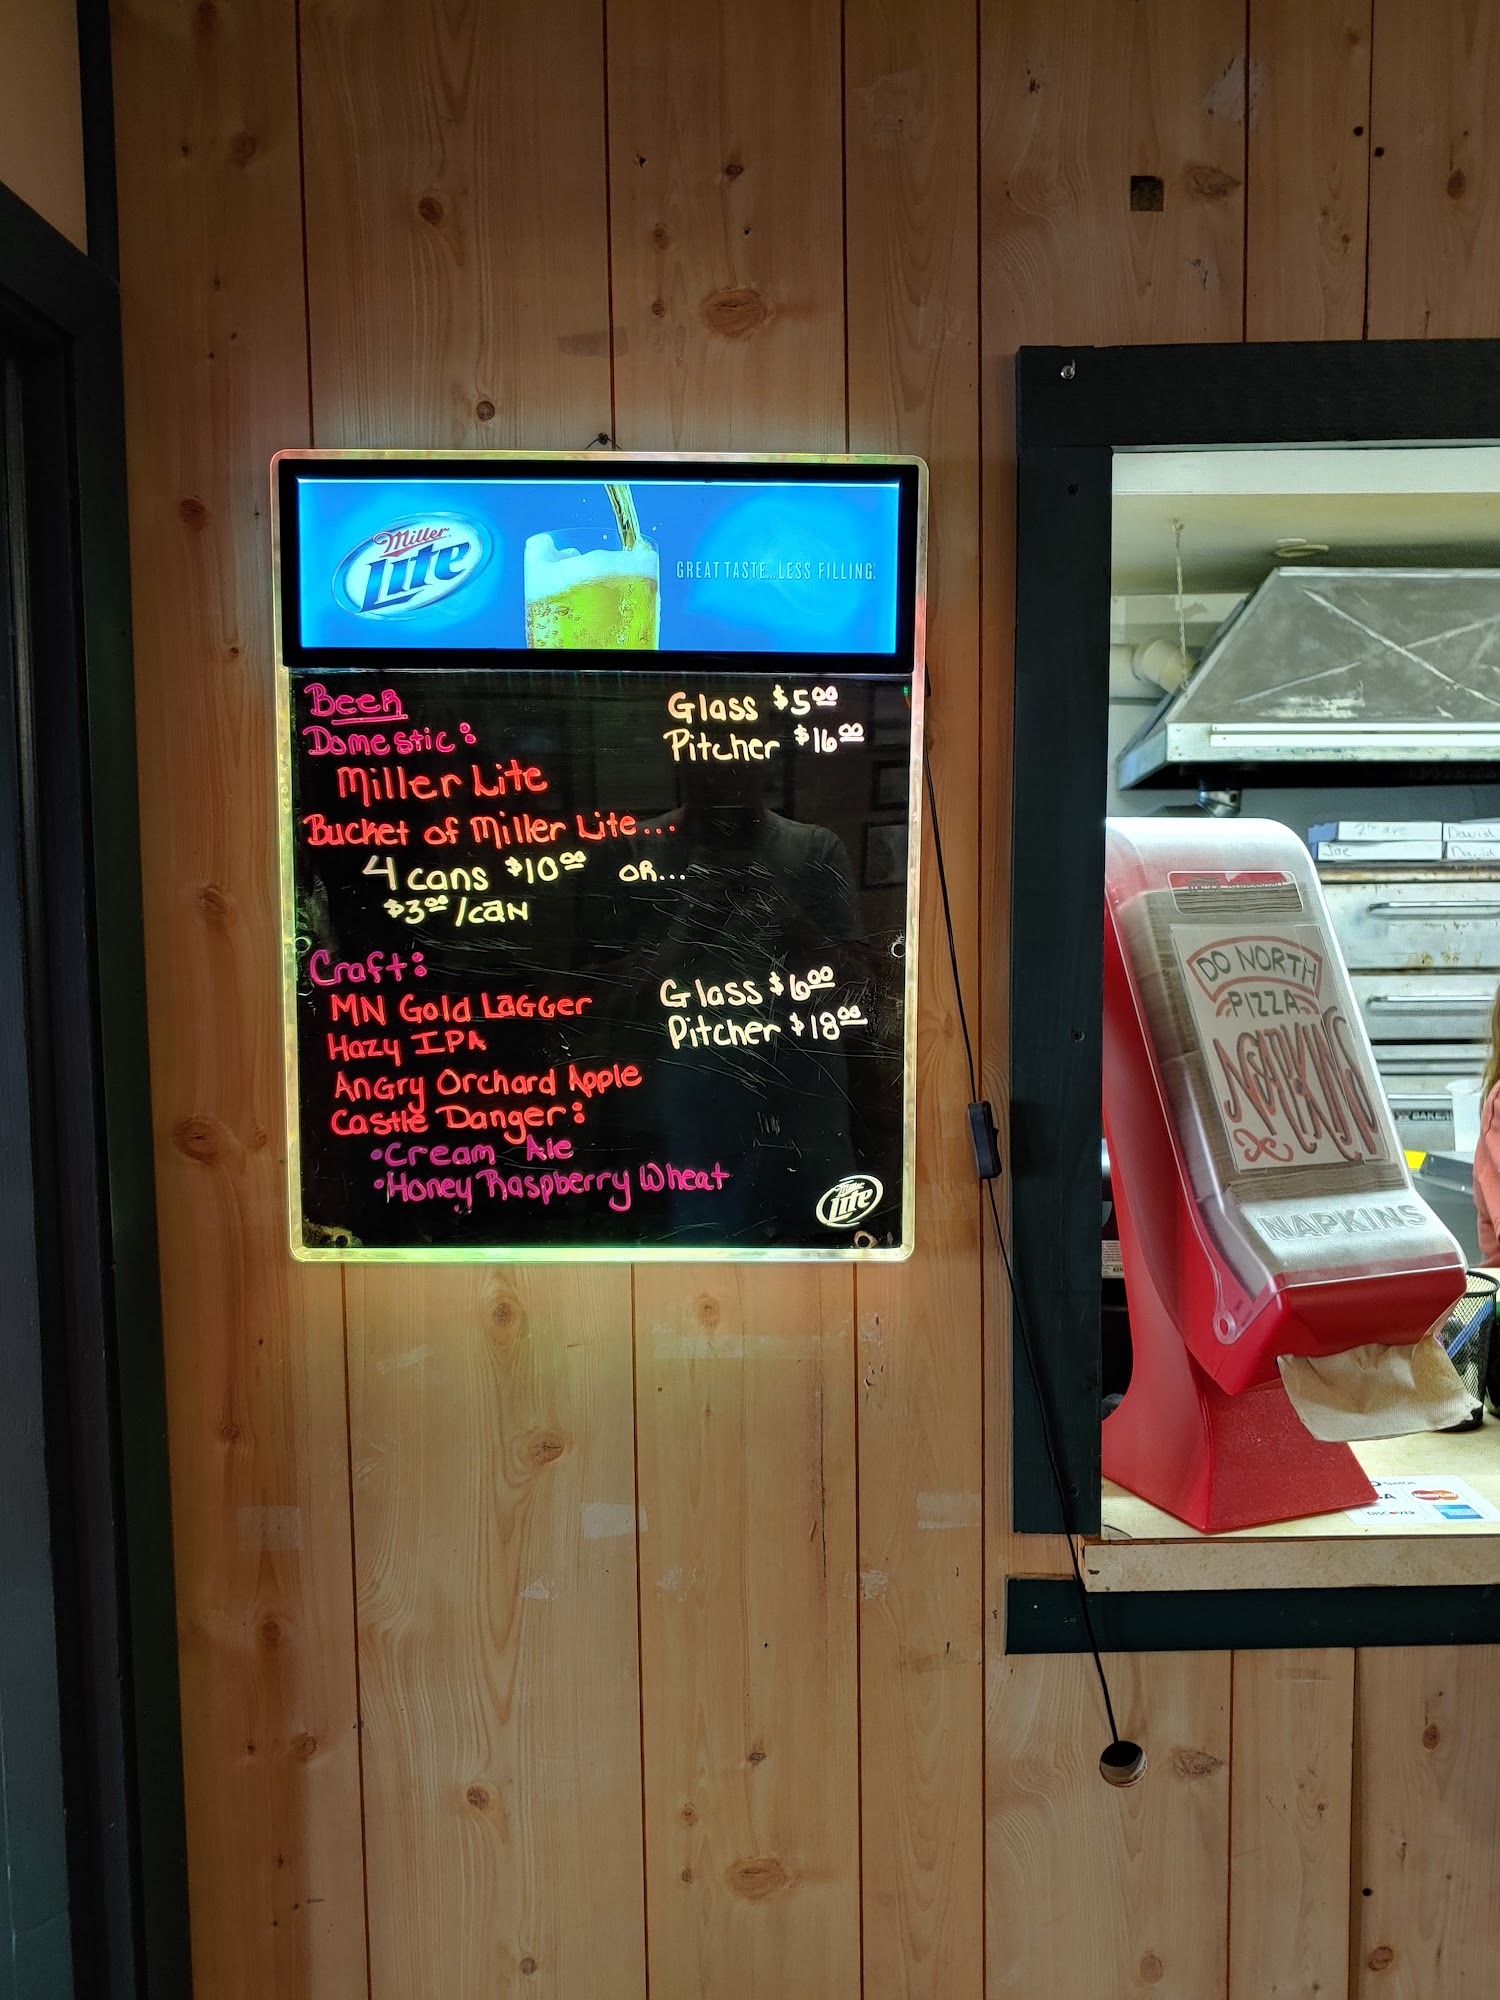 Miller
Lite
GREAT TASTE...LESS FILLING.
Beer
Glass $5.00
Domestic:
Pitcher $16.00
Miller Lite
Bucket of Miller Lite...
4 cans $10.00 OR...
$3.00/can
Craft:
Glass $6.00
MN Gold Lagger
Pitcher $18.00
Hazy IPA
Angry Orchard Apple
Castle Danger:
•Cream Ale
•Honey Raspberry Wheat
Miller
Lite
2nd Ave
David
Joe
David
DO NORTH
PIZZA
NAPKINS
NAPKINS
BAKER
MasterCard
DISCOVER